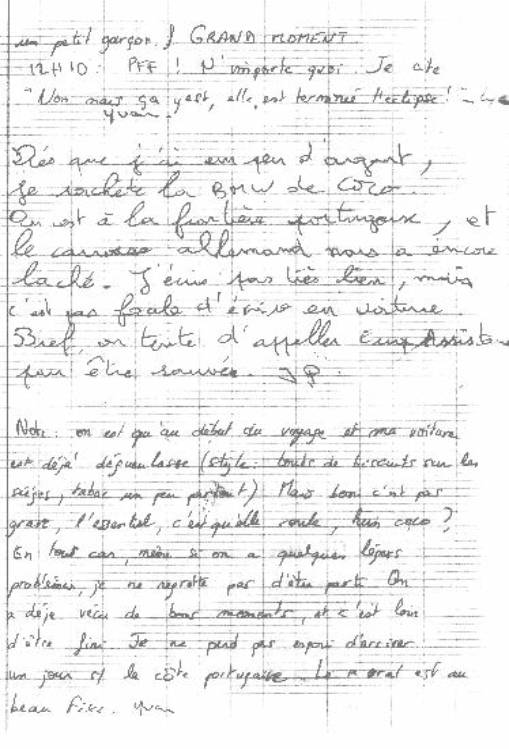 un petit garçon. } GRAND MOMENT
12H10 : PFF ! N'importe quoi. Je cite
"Non mais ça y est, elle est terminée l'eclipse !"
Yvan.
Dés que j'ai un peu d'argent,
je rachète la BMW de COCO.
On est à la frontière portugaise, et
le carrosse allemand nous a encore
laché. J'écris pas très bien, mais
c'est pas facile d'écrire en voiture.
Bref, on tente d'appeller Europ Assistance
pour être sauvés. JP.
Note : on est qu'au début du voyage et ma voiture
est déjà dégueulasse (style : bouts de biscuits sur les
sièges, tabac un peu partout) Mais bon c'est pas
grave, l'essentiel, c'est qu'elle roule, hein coco ?
En tout cas, même si on a quelques légers
problèmes, je ne regrette pas d'être parti. On
a déjà vécu de bons moments, et c'est loin
d'être fini. Je ne perd pas espoir d'arriver
un jour sr la côte portugaise. Le moral est au
beau fixe. Yvan